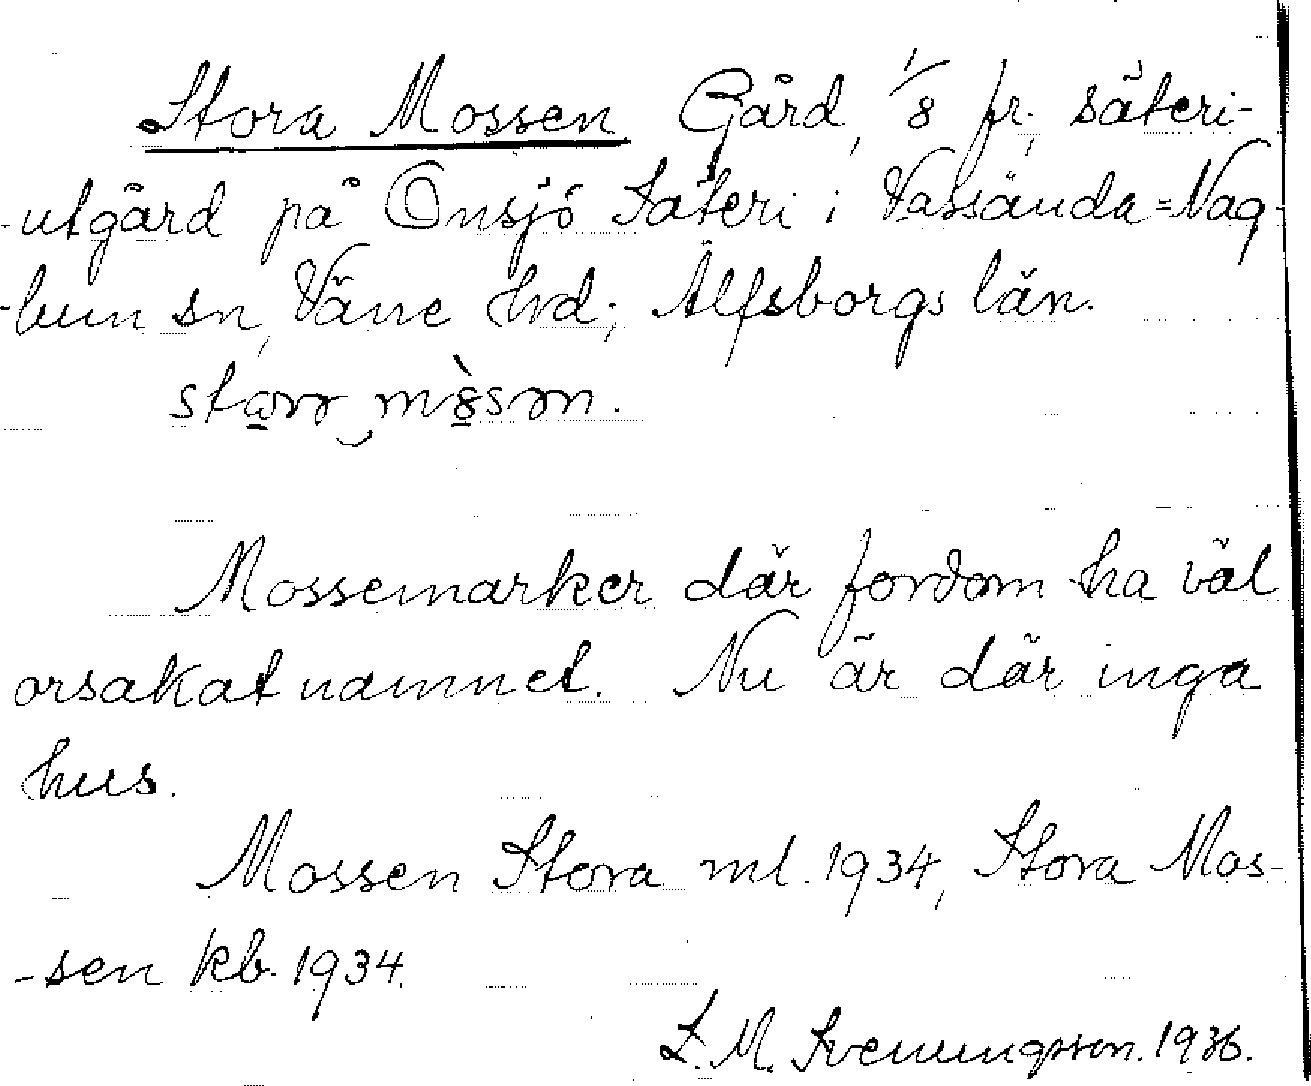 Stora Mossen Gård, 1/8 fr, säteri-
-utgård på Onsjö Säteri i Vassända=Nag-
-lum sn, Väne Hrd; Älfsborgs län.
Mossemarker där fordom ha väl
orsakat namnet. Nu är där inga
hus.
Mossen Stora ml. 1934, Stora Mos-
-sen kb. 1934.
L. M. Svenungsson. 1936.